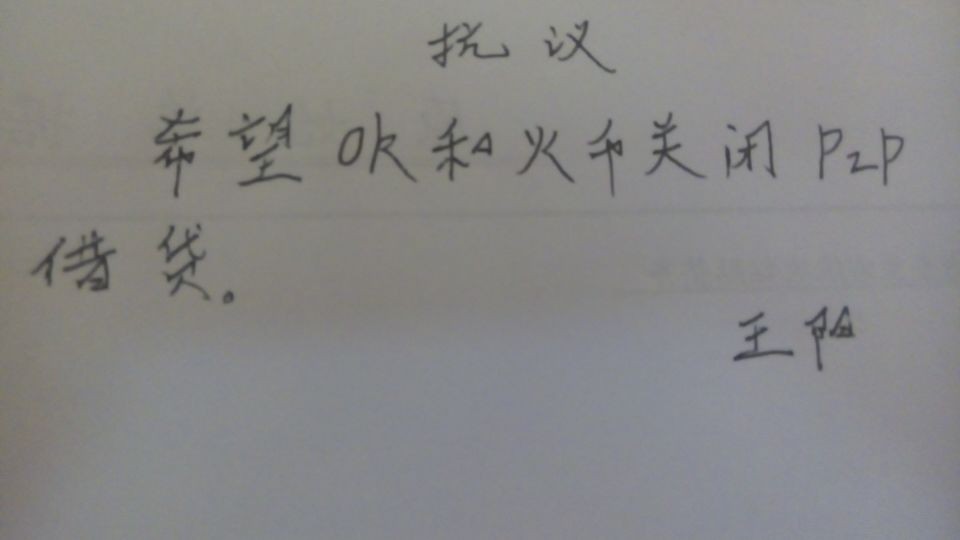 抗议
希望OK和火币关闭P2P
借贷。
王阳